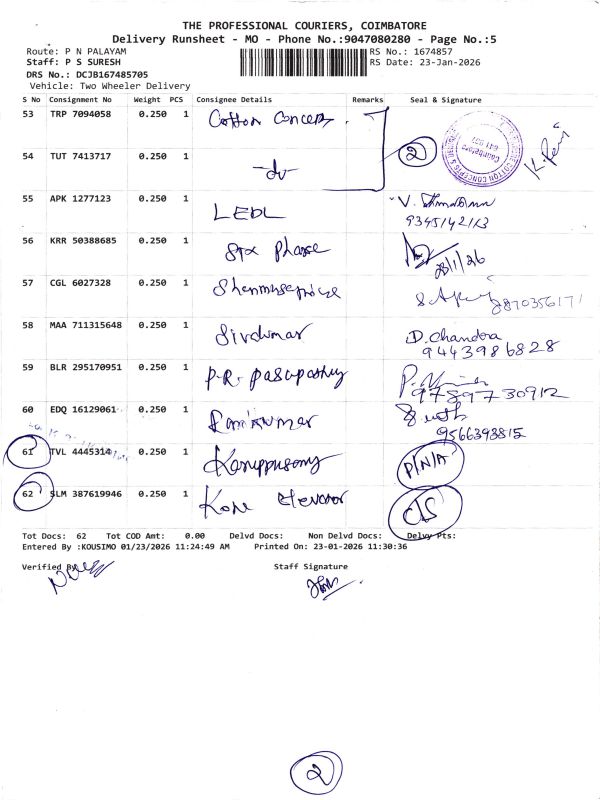 THE PROFESSIONAL COURIERS, COIMBATORE
Delivery Runsheet - MO - Phone No.:9047080280 - Page No.:5
Route: P N PALAYAM RS No.: 1674857
Staff: P S SURESH RS Date: 23-Jan-2026
DRS No.: DCJB167485705
Vehicle: Two Wheeler Delivery
S No Consignment No Weight PCS Consignee Details Remarks Seal & Signature
53 TRP 7094058 0.250 1 Cotton Concept
54 TUT 7413717 0.250 1 -do- 2 K. Ravi
55 APK 1277123 0.250 1 LEDL V.
9345142113
56 KRR 50388685 0.250 1 Stx Phase 23/1/26
57 CGL 6027328 0.250 1 8870356171
58 MAA 711315648 0.250 1 Sivakumar D. Chandra
9443986828
59 BLR 295170951 0.250 1 P.R. Pasupathy 9789730912
60 EDQ 16129061 0.250 1 Ramkumar
9566393815
61 TVL 4445314 0.250 1 Karuppusamy P/N/A
62 SLM 387619946 0.250 1 Kone Elevator C/S
Tot Docs: 62 Tot COD Amt: 0.00 Delvd Docs: Non Delvd Docs: Delvy Pts:
Entered By :KOUSIMO 01/23/2026 11:24:49 AM Printed On: 23-01-2026 11:30:36
Verified By Staff Signature
2